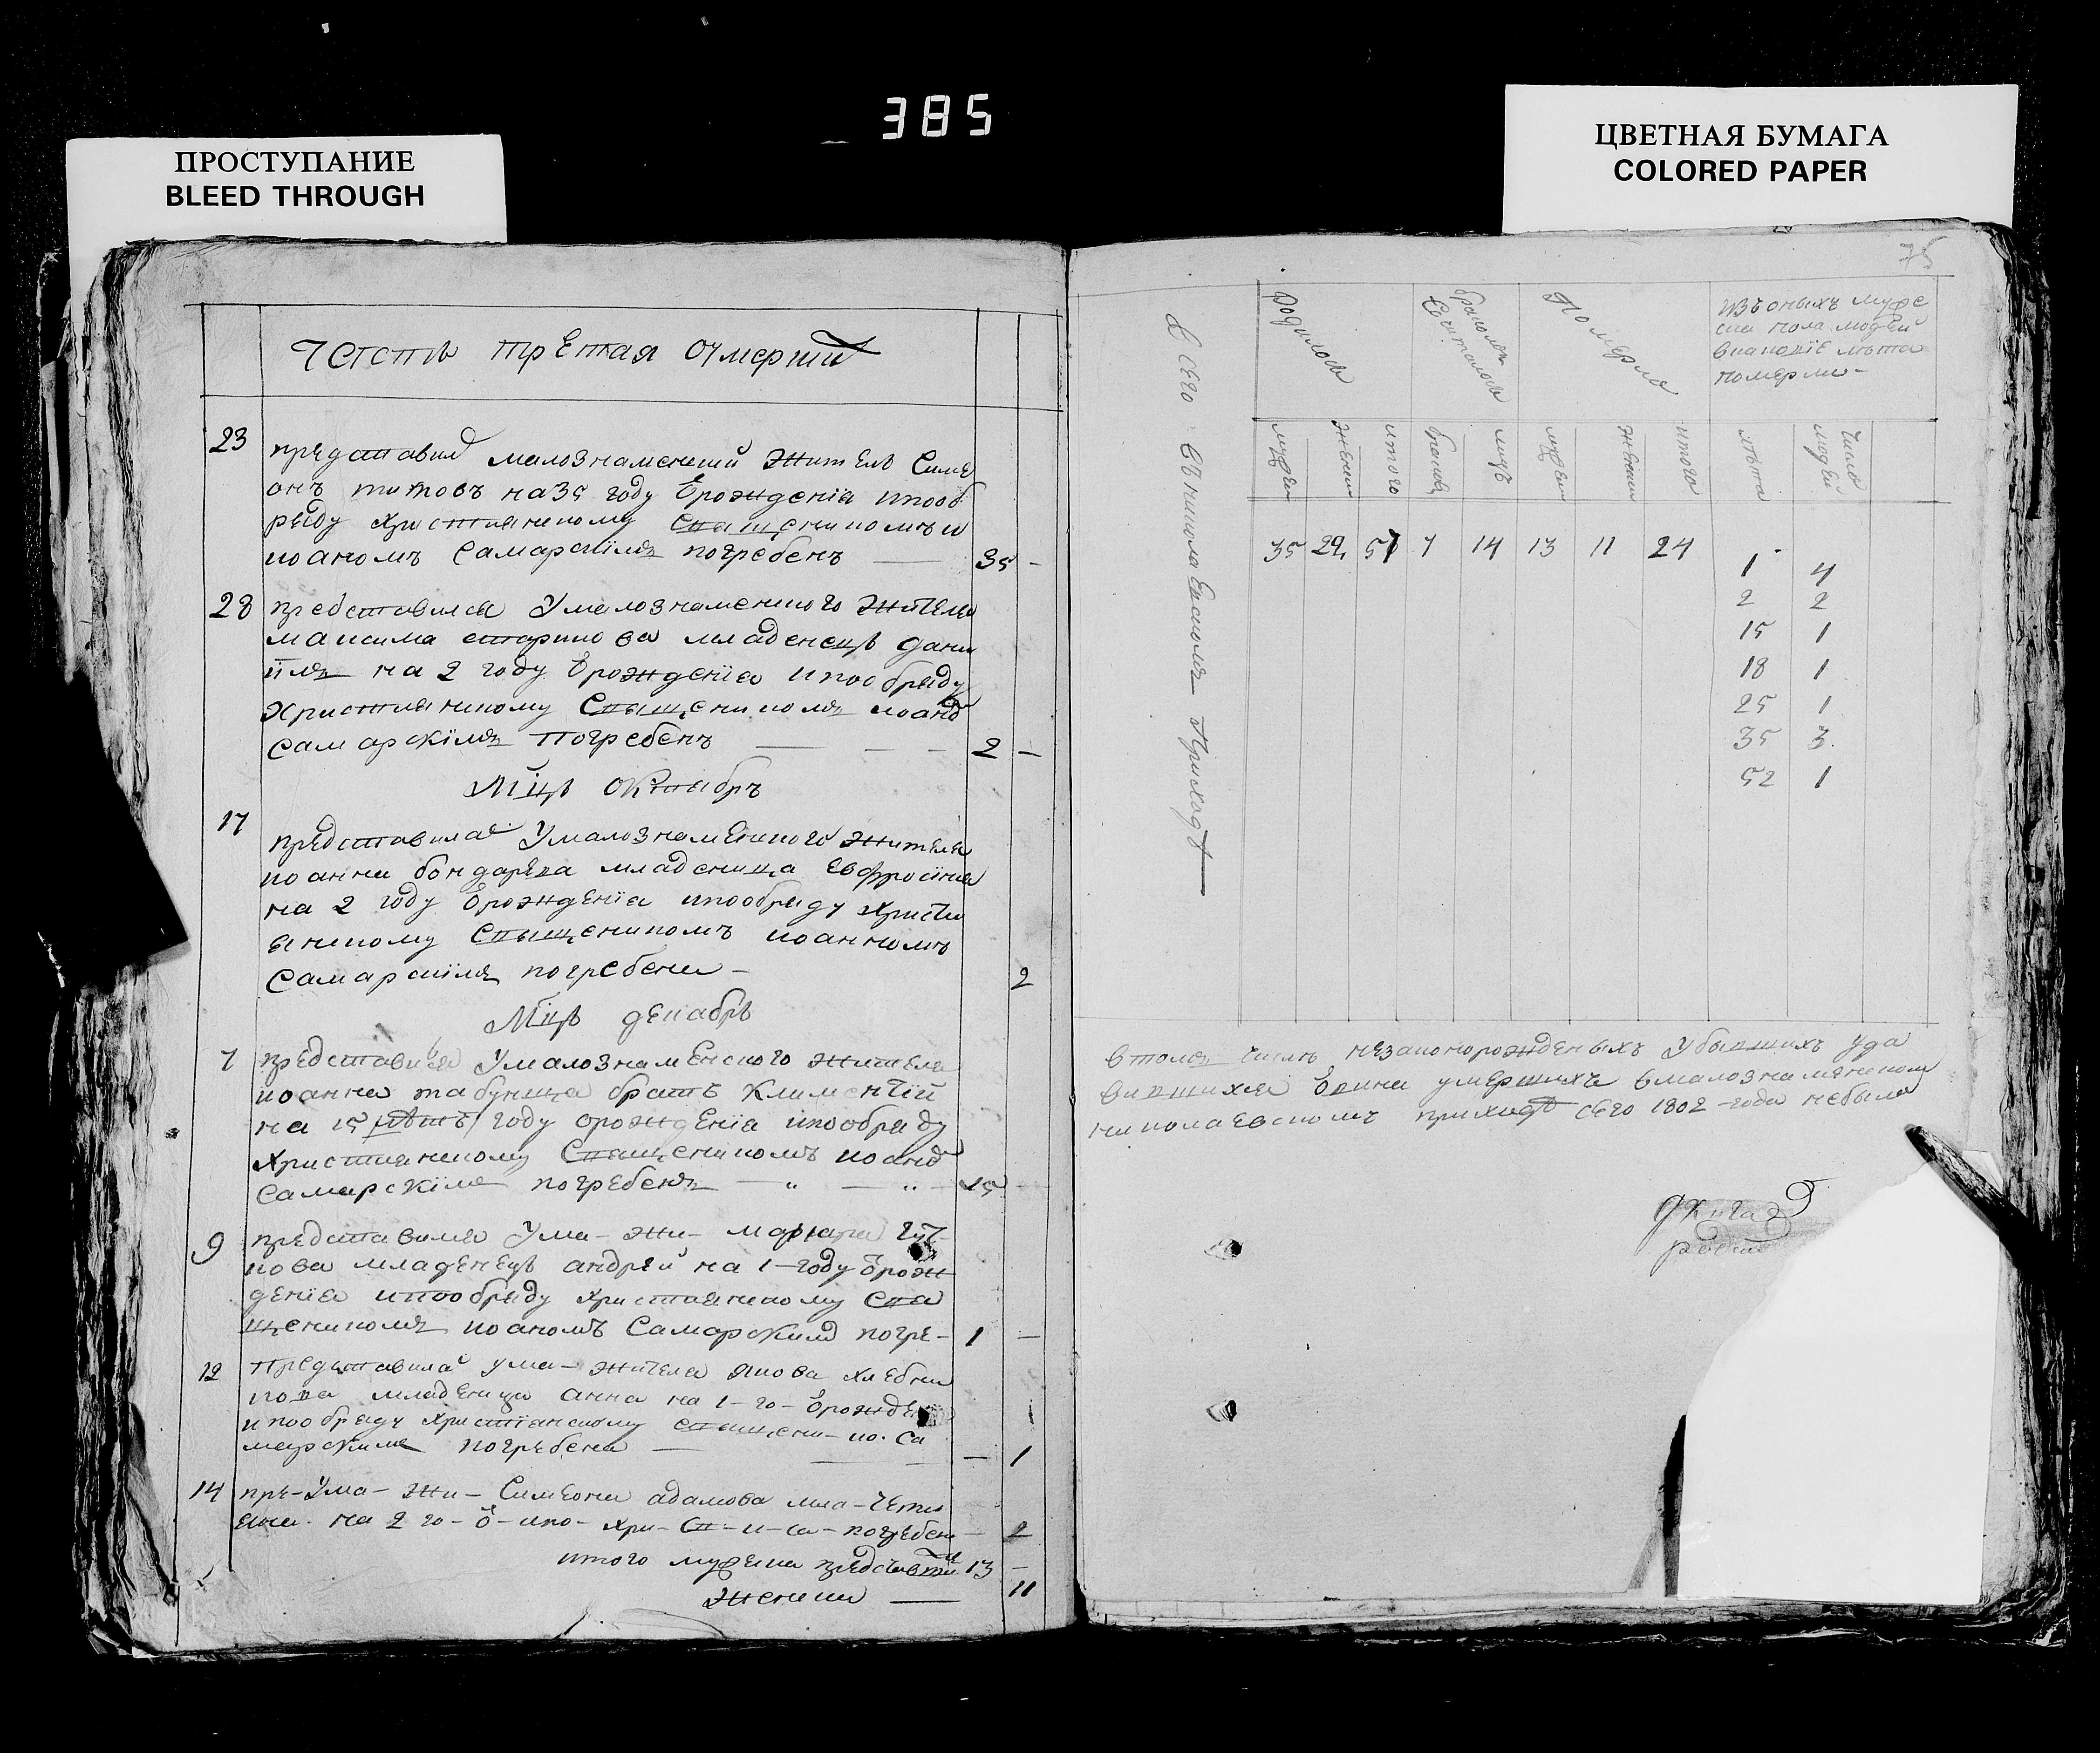 385
ПРОСТУПАНИЕ
BLEED THROUGH
ЦВЕТНАЯ БУМАГА
COLORED PAPER
Часть третая оумерши
23
представил малознаменский житель Симе
онъ титовъ на 35 году ѿ рожденїя ипооб
ряду християнскому Священникомъ и
иоаномъ Самарскїмъ погребенъ — 35 -
28 представился Умалознаменского жителя
максима старикова младенецъ дани
їлъ на 2 году ѿ рожденїя ипообряду
християнскому Священникомъ иоано
Самарскїмъ погребенъ — — — 2 —
Мцъ октябръ
17
представилас Умалознаменского жителя
иоанна бондарева младеница евфросиния
на 2 году ѿ рожденїя ипообряду христи
янскому Священникомъ иоанномъ
Самарскїмъ погребена — 2
Мцъ декабръ
7 представился Умалознаменского жителя
иоанна табунца братъ Климентїй
на 15 лѣтъ году ѿ рожденїя ипообряду
християнскому Священникомъ иоано
Самарскїмъ погребенъ — „ — „ — 15
9 представился Ума- жи-
кова младенецъ андрей на 1-году ѿ рож
денїя ипообряду християнскому Свя
щенникомъ иоаномъ Самарскимъ погре- 1 —
12 Представилас ума- жителя якова хлебни
кова младеница анна на 1-го- ѿ рожде
ипообряду християнскому священи- ио. Са
марскимъ погребена — — 1
14 пре- Ума- жи- Симеона адамова мла-
на 2 го- ѿ- ипо- хри- Св- и- са- погребена — 2
итого мужеска представи 13 —
женска — 11
75
Всего Свниколаевскомъ Приходѣ
Родилось
браком Сочталось
Померло
изъ оныхъ муже
ска пола людей
в какие лѣта
померли-
мужеск
женск
итого
браков
лицъ
мужеск
женск
итого
лѣта
число людей
35 29 57 7 14 13 11 24
1 4
2 2
15 1
18 1
25 1
35 3.
52 1
втомъ числѣ незаконорожденыхъ убывшихъ уда
вившихся умершихъ вмалознаменском
николаевскомъ приходѣ сего 1802 -года небыло